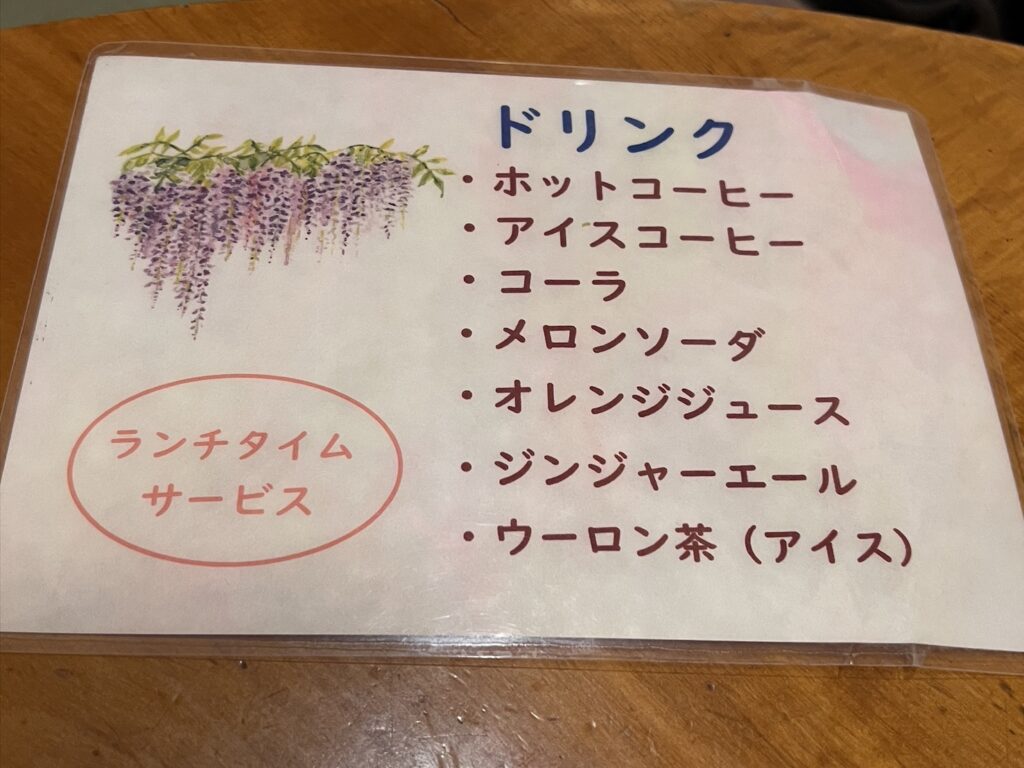 ドリンク
・ホットコーヒー
・アイスコーヒー
・コーラ
・メロンソーダ
・オレンジジュース
・ジンジャーエール
・ウーロン茶（アイス）
ランチタイム
サービス